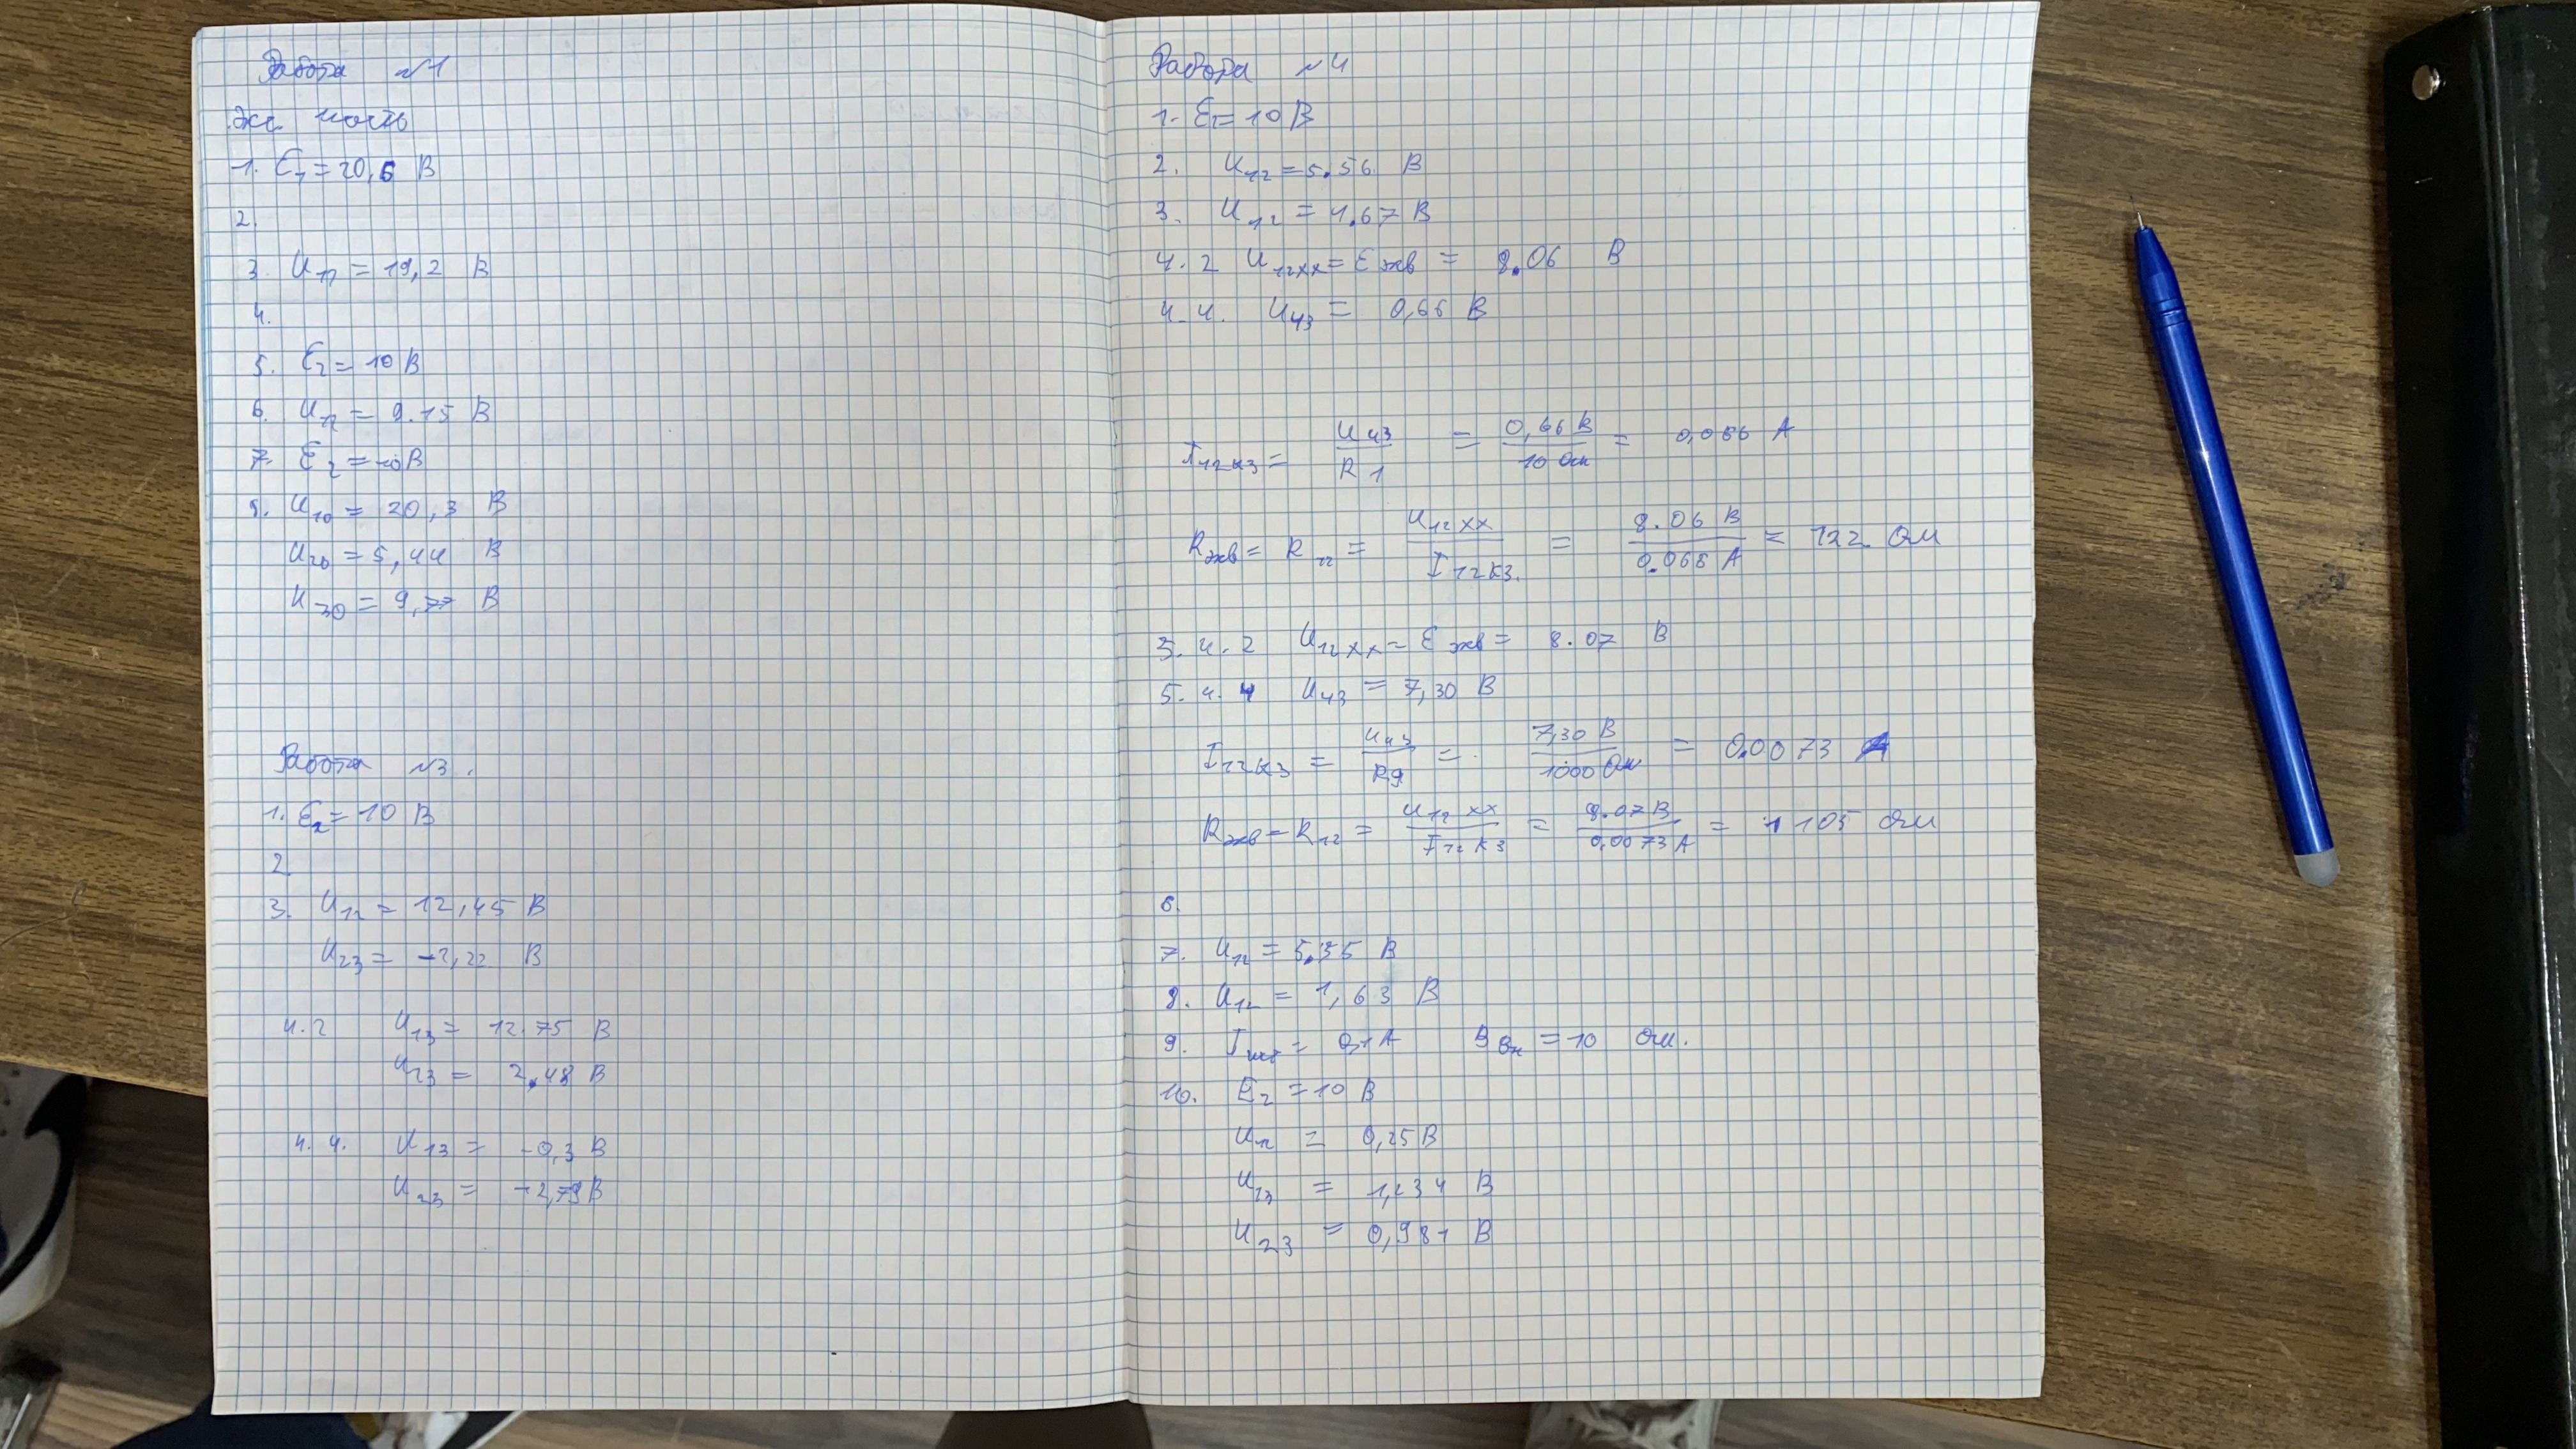 Работа №1
Экс часть
1. Ɛ₁ = 20,6 В
2.
3. U₁₂ = 19,2 В
4.
5. Ɛ₂ = 10 В
6. U₁₂ = 9.15 В
7. Ɛ₂ = 10 В
U₁₀ = 20,3 В
U₂₀ = 5,44 В
U₃₀ = 9,77 В
Работа №3.
1. Ɛ₂ = 10 В
2
3. U₁₂ = 12,45 В
U₂₃ = -2,22 В
4.2 U₁₃ = 12.75 В
U₂₃ = 2,48 В
4.4. U₁₃ = -0,3 В
U₂₃ = -2,79 В
Работа №4
1. Ɛ₂ = 10 В
2. U₁₂ = 5.56 В
3. U₁₂ = 1.67 В
4.2 U₁₂хх = Ɛэкв = 8.06 В
4.4. U₄₃ = 0,66 В
I₁₂кз = U₄₃ / R1 = 0,66 В / 10 Ом = 0,066 А
Rэкв = R₁₂ = U₁₂хх / I₁₂кз. = 8.06 В / 0.066 А = 122 Ом
5.4.2 U₁₂хх = Ɛэкв = 8.07 В
5.4.4 U₄₃ = 7,30 В
I₁₂кз = U₄₃ / R9 = 7,30 В / 1000 Ом = 0.0073 А
Rэкв = R₁₂ = U₁₂хх / I₁₂кз = 8.07 В / 0,0073 А = 1105 Ом
6.
7. U₁₂ = 5,55 В
8. U₁₂ = 1,63 В
9. = 0,1 А = 10 Ом.
10. E₂ = 10 В
U₁₂ = 0,25 В
U₁₃ = 1,234 В
U₂₃ = 0,981 В